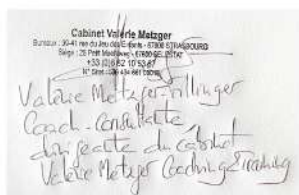 Cabinet Valérie Metzger
Bureaux : 39-41 rue du Jeu des Enfants - 67000 STRASBOURG
Siège : 28 Petit 67600 SELESTAT
+33 (0)6 62 10 53 67
N° Siret
Valérie Metzger-Villinger
Coach-Consultante,
dirigeante du cabinet
Valérie Metzger Coaching & Training